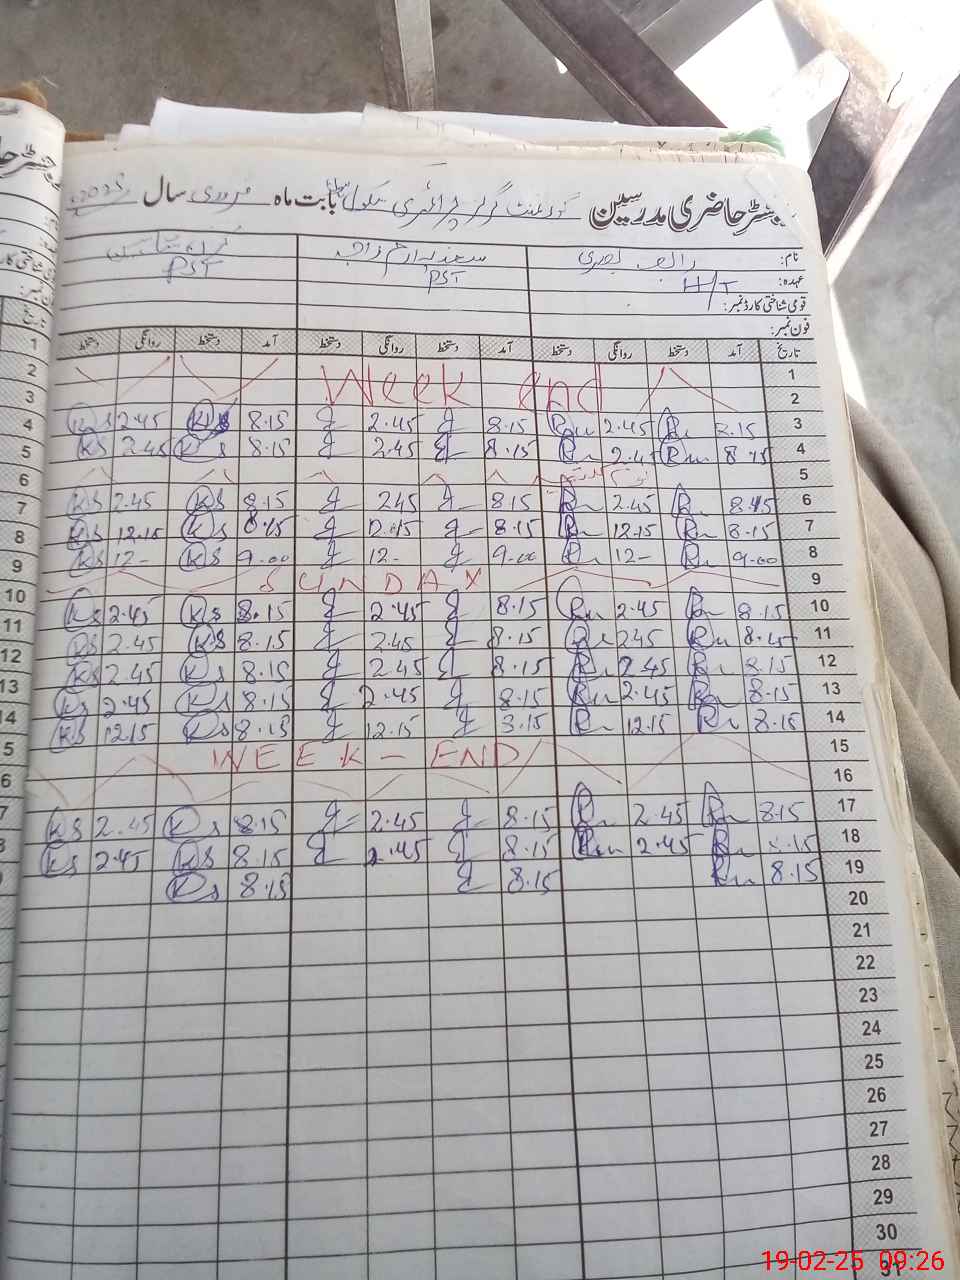 رجسٹر حاضری مدرسین گورنمنٹ گرلز پرائمری سکول بابت ماہ فروری سال 2025
نام: رابعہ بصری
عہدہ: H/T PST PST
قومی شناختی کارڈ نمبر:
فون نمبر:
تاریخ آمد دستخط روانگی دستخط آمد دستخط روانگی دستخط آمد دستخط روانگی دستخط
1 Week end
2
3 8.15 Ru 2.45 Ru 8.15 2.45 8.15 Ks 2.45 Ks
4 8.15 Ru 2.45 Ru 8.15 2.45 8.15 Ks 2.45 Ks
5
6 8.15 Ru 2.45 Ru 8.15 2.45 8.15 Ks 2.45 Ks
7 8.15 Ru 12.15 Ru 8.15 12.15 8.15 Ks 12.15 Ks
8 9.00 Ru 12- Ru 9.00 12- 9.00 Ks 12- Ks
9 SUNDAY
10 8.15 Ru 2.45 Ru 8.15 2.45 8.15 Ks 2.45 Ks
11 8.15 Ru 2.45 Ru 8.15 2.45 8.15 Ks 2.45 Ks
12 8.15 Ru 2.45 Ru 8.15 2.45 8.15 Ks 2.45 Ks
13 8.15 Ru 2.45 Ru 8.15 2.45 8.15 Ks 2.45 Ks
14 8.15 Ru 12.15 Ru 8.15 12.15 8.15 Ks 12.15 Ks
15 WEEK - END
16
17 8.15 Ru 2.45 Ru 8.15 2.45 8.15 Ks 2.45 Ks
18 8.15 Ru 2.45 Ru 8.15 2.45 8.15 Ks 2.45 Ks
19 8.15 Ru 8.15 8.15 Ks
20
21
22
23
24
25
26
27
28
29
30
31
19-02-25 09:26